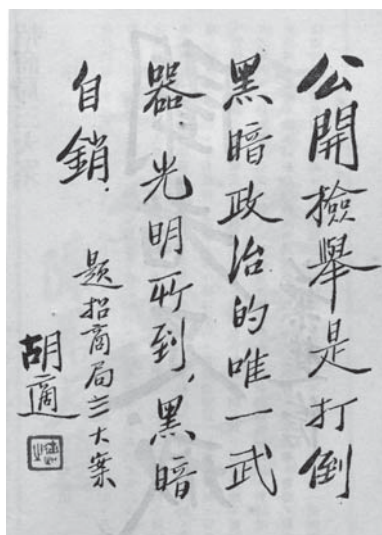 公開檢舉是打倒
黑暗政治的唯一武
器.光明所到,黑暗
自銷.
題招商局三大案
胡適